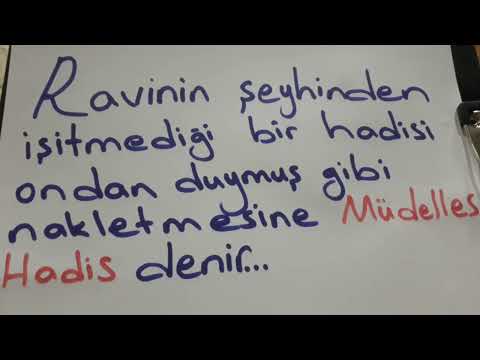 Ravinin şeyhinden
işitmediği bir hadisi
ondan duymuş gibi
nakletmesine Müdelles
Hadis denir...